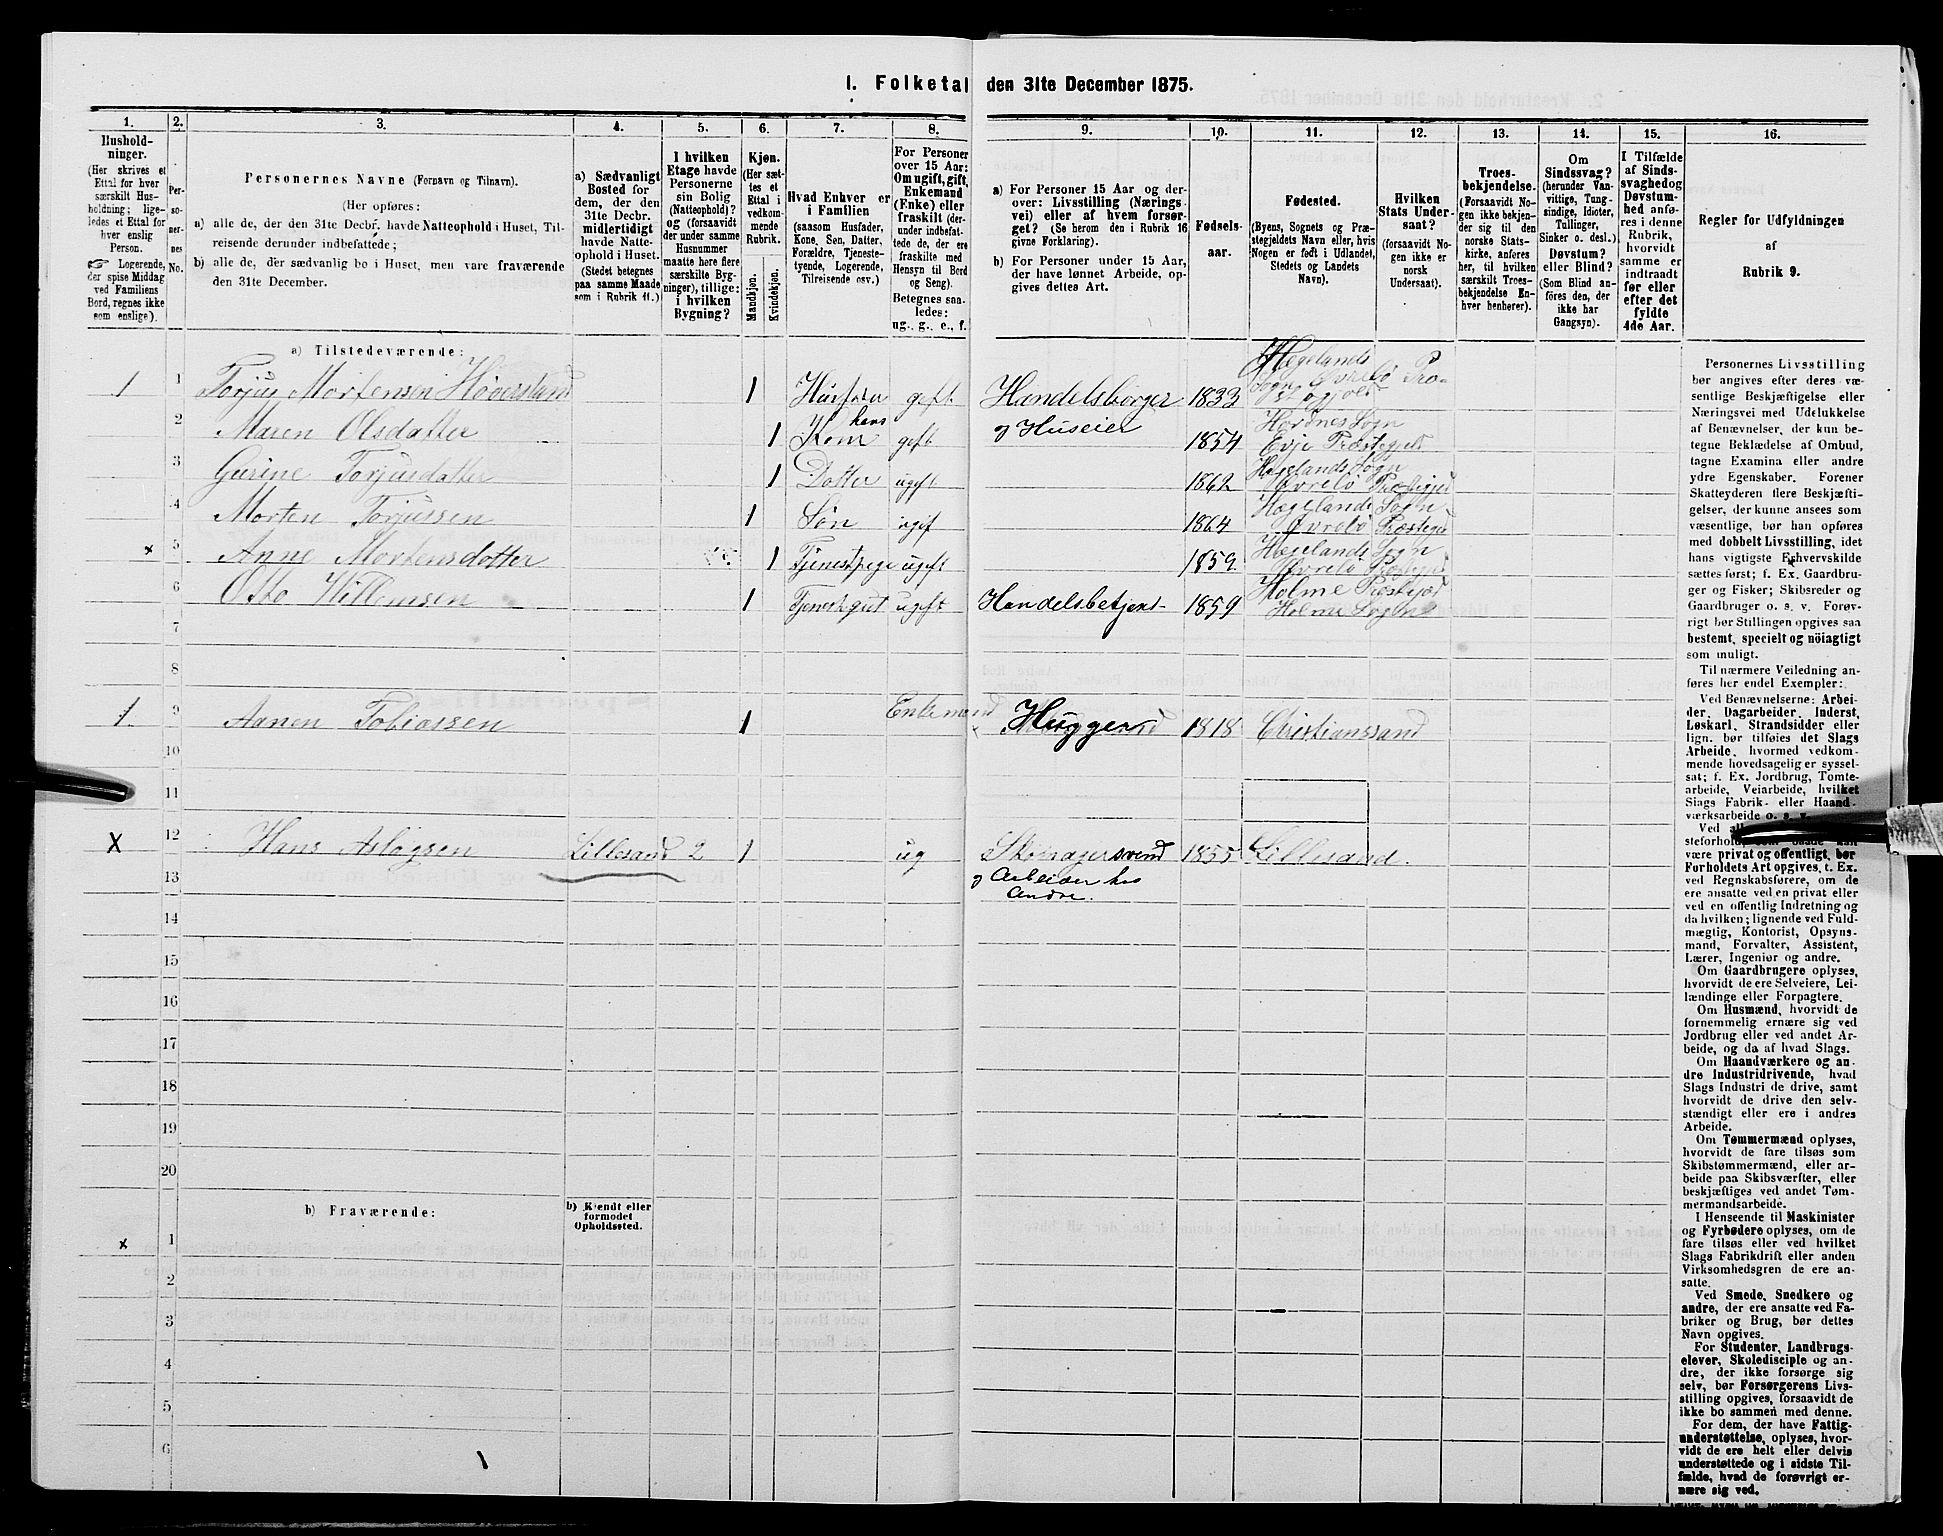 1. Folketal den 31te December 1875.
1.
Hushold-
ninger.
(Her skrives et
Ettal for hver
særskilt Hus-
holdning; lige-
ledes et Ettal for
hver enslig
Person.
Logerende,
der spise Middag
ved Familiens
Bord, regnes ikke
som enslige).
2.
Per-
so-
ner-
nes
No.
3.
Personernes Navne (Fornavn og Tilnavn).
(Her opføres:
a) alle de, der den 31te Decbr. havde Natteophold i Huset, Til-
reisende derunder indbefattede;
b) alle de, der sædvanlig bo i Huset, men vare fraværende
den 31te December.
4.
a) Sædvanligt
Bosted for
dem, der den
31te Decbr.
midlertidigt
havde Natte-
ophold i Huset.
(Stedet betegnes
paa samme Maade
som i Rubrik 11.)
5.
I hvilken
Etage havde
Personerne
sin Bolig
(Natteophold)?
og (forsaavidt
der under samme
Husnummer
maatte høre flere
særskilte Byg-
ninger), tillige:
i hvilken
Bygning?
6.
Kjøn.
(Her sæt-
tes et
Ettal i
vedkom-
mende
Rubrik.
Mandkjøn.
Kvindekjøn.
7.
Hvad Enhver er
i Familien
(saasom Husfader,
Kone, Søn, Datter,
Forældre, Tjeneste-
tyende, Logerende,
Tilreisende osv.)
8.
For Personer
over 15 Aar:
Om ugift, gift,
Enkemand
(Enke) eller
fraskilt (der-
under indbefat-
tede de, der ere
fraskilte med
Hensyn til Bord
og Seng).
Betegnes saa-
ledes:
ug., g., e., f.
9.
a) For Personer 15 Aar og der-
over: Livsstilling (Nærings-
vei) eller af hvem forsør-
get? (Se herom den i Rubrik 16
givne Forklaring).
b) For Personer under 15 Aar,
der have lønnet Arbeide, op-
gives dettes Art.
10.
Fødsels-
aar.
11.
Fødested.
(Byens, Sognets og Præ-
stegjeldets Navn eller, hvis
Nogen er født i Udlandet,
Stedets og Landets
Navn).
12.
Hvilken
Stats Under-
saat?
(forsaavidt No-
gen ikke er
norsk
Undersaat).
13.
Troes-
bekjendelse.
(Forsaavidt No-
gen ikke bekjen-
der sig til den
norske Stats-
kirke, anføres
her, til hvilken
særskilt Troes-
bekjendelse En-
hver henhører).
14.
Om
Sindssvag?
(herunder Van-
vittige, Tung-
sindige, Idioter,
Tullinger,
Sinker o. desl.)
Døvstum?
eller Blind?
(Som Blind an-
føres den, der
ikke har
Gangsyn).
15.
I Tilfælde
af Sinds-
svaghed og
Døvstum-
hed anfø-
res i denne
Rubrik,
hvorvidt
samme er
indtraadt
før eller
efter det
fyldte
4de Aar.
16.
Regler for Udfyldningen
af
Rubrik 9.
a) Tilstedeværende:
1 1 Torjus Mortensen Høverstand 1 Husfader gift Handelsborger 1833 Hægelands Sogn Øvrebø Præ-
stegjeld
2 Maren Olsdatter 1 hans Kone gift og Huseier 1854 Hordnes Sogn
Evje Præstegjeld
3 Gurine Torjusdatter 1 Datter ugift 1862 Hægelands Sogn
Øvrebø Præstegjeld
4 Morten Torjussen 1 Søn ugif 1864 Hægelands Sogn
Øvrebø Præstegjeld
x 5 Anne Mortensdatter 1 Tjenestpige ugift 1859. Hægelands Sogn
Øvrebø Præstegjeld
6 Otto Willemsen 1 Tjenestegut ugift Handelsbetjent 1859 Holme Præstegjeld
Holme Sogn
7
8
1 9 Aanen Tobiassen 1 Enkemand Huggeand 1818 Christianssand
10
11
X 12 Hans Asløgsen Lillesand 2 1 ug Skomagersvend 1855 Lillesand.
13 og Arbeider hos
Andre.
14
15
16
17
18
19
20
b) Fraværende:
b) Kjendt eller
formodet
Opholdssted.
x 1
2
3
4
5
6
Personernes Livsstilling
bør angives efter deres væ-
sentlige Beskjæftigelse eller
Næringsvei med Udelukkelse
af Benævnelser, der kun be-
tegne Beklædelse af Ombud,
tagne Examina eller andre
ydre Egenskaber. Forener
Skatteyderen flere Beskjæfti-
gelser, der kunne ansees som
væsentlige, bør han opføres
med dobbelt Livsstilling, idet
hans vigtigste Erhvervskilde
sættes først; f. Ex. Gaardbru-
ger og Fisker; Skibsreder og
Gaardbruger o. s. v. Forøv-
rigt bør Stillingen opgives saa
bestemt, specielt og nöiagtigt
som muligt.
Til nærmere Veiledning an-
føres her endel Exempler:
Ved Benævnelserne: Arbei-
der, Dagarbeider, Inderst,
Løskarl, Strandsidder eller
lign. bør tilføies det Slags
Arbeide, hvormed vedkom-
mende hovedsagelig er syssel-
sat; f. Ex. Jordbrug, Tomte-
arbeide, Veiarbeide, hvilket
Slags Fabrik- eller Haand-
værksarbeide o. s. v.
Ved
være privat og offentligt, bør
Forholdets Art opgives, t. Ex.
ved Regnskabsførere, om de
ere ansatte ved en privat eller
ved en offentlig Indretning og
da hvilken; lignende ved Fuld-
mægtig, Kontorist, Opsyns-
mand, Forvalter, Assistent,
Lærer, Ingeniør og andre.
Om Gaardbrugere oplyses,
hvorvidt de ere Selveiere, Lei-
lændinge eller Forpagtere.
Om Husmænd, hvorvidt de
fornemmelig ernære sig ved
Jordbrug eller ved andet Ar-
beide, og da af hvad Slags.
Om Haandværkere og an-
dre Industridrivende, hvad
Slags Industri de drive, samt
hvorvidt de drive den selv-
stændigt eller ere i andres
Arbeide.
Om Tømmermænd oplyses,
hvorvidt de fare tilsøs som
Skibstømmermænd, eller ar-
beide paa Skibsværfter, eller
beskjæftiges ved andet Tøm-
mermandsarbeide.
I Henseende til Maskinister
og Fyrbødere oplyses, om de
fare tilsøs eller ved hvilket
Slags Fabrikdrift eller anden
Virksomhedsgren de ere an-
satte.
Ved Smede, Snedkere og
andre, der ere ansatte ved Fa-
briker og Brug, bør dettes
Navn opgives.
For Studenter, Landbrugs-
elever, Skoledisciple og an-
dre, der ikke forsørge sig
selv, bør Forsørgerens Livs-
stilling opgives, forsaavidt de
ikke bo sammen med denne.
For dem, der have Fattig-
understøttelse, oplyses, hvor-
vidt de ere helt eller delvis
understøttede og i sidste Til-
fælde, hvad de forøvrigt er-
nære sig ved.